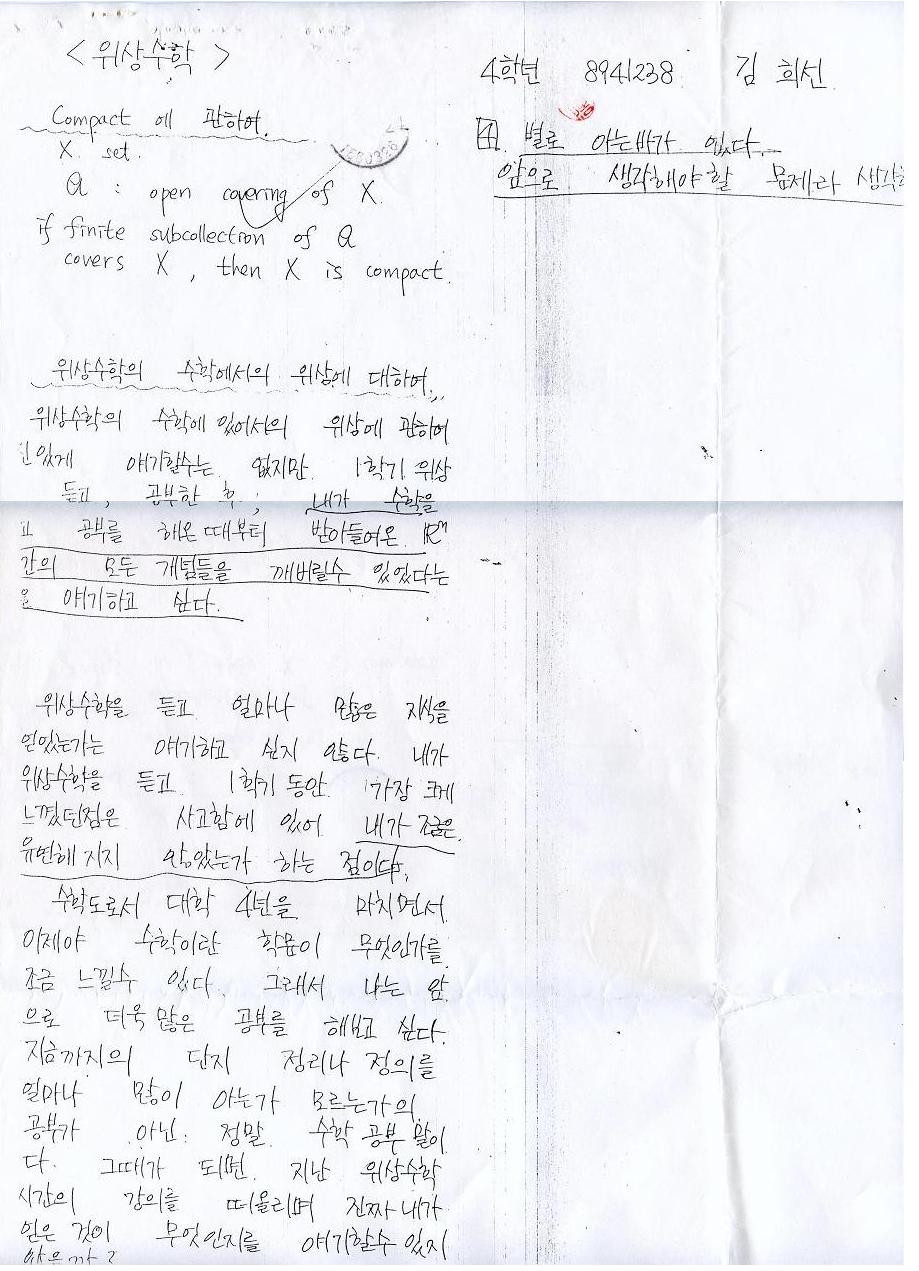 < 위상수학 >
4학년 8941238 김 희선
Compact 에 관하여.
X. set.
Q : open covering of X.
if finite subcollection of Q
covers X, then X is compact.
4. 별로 아는바가 없다.
앞으로 생각해야할 문제라 생각
위상수학의 수학에서의 위상에 대하여.
위상수학의 수학에 있어서의 위상에 관하여
있게 얘기할수는 없지만. 1학기 위상
듣고, 공부한 후, 내가 수학을
고 공부를 해온 때부터 받아들여온 ℝⁿ
간의 모든 개념들을 깨버릴수 있었다는
을 얘기하고 싶다.
위상수학을 듣고 얼마나 많은 지식을
얻었는가는 얘기하고 싶지 않다. 내가
위상수학을 듣고 1학기 동안 가장 크게
느꼈던점은 사고함에 있어 내가 조금은
유연해 지지 않았는가 하는 점이다.
수학도로서 대학 4년을 마치면서
이제야 수학이란 학문이 무엇인가를
조금 느낄수 있다. 그래서 나는 앞
으로 더욱 많은 공부를 해보고 싶다.
지금까지의 단지 정리나 정의를
얼마나 많이 아는가 모르는가의
공부가 아닌. 정말 수학 공부 말이
다. 그때가 되면 지난 위상수학
시간의 강의를 떠올리며 진짜 내가
얻은 것이 무엇인지를 얘기할수 있지
않을까?